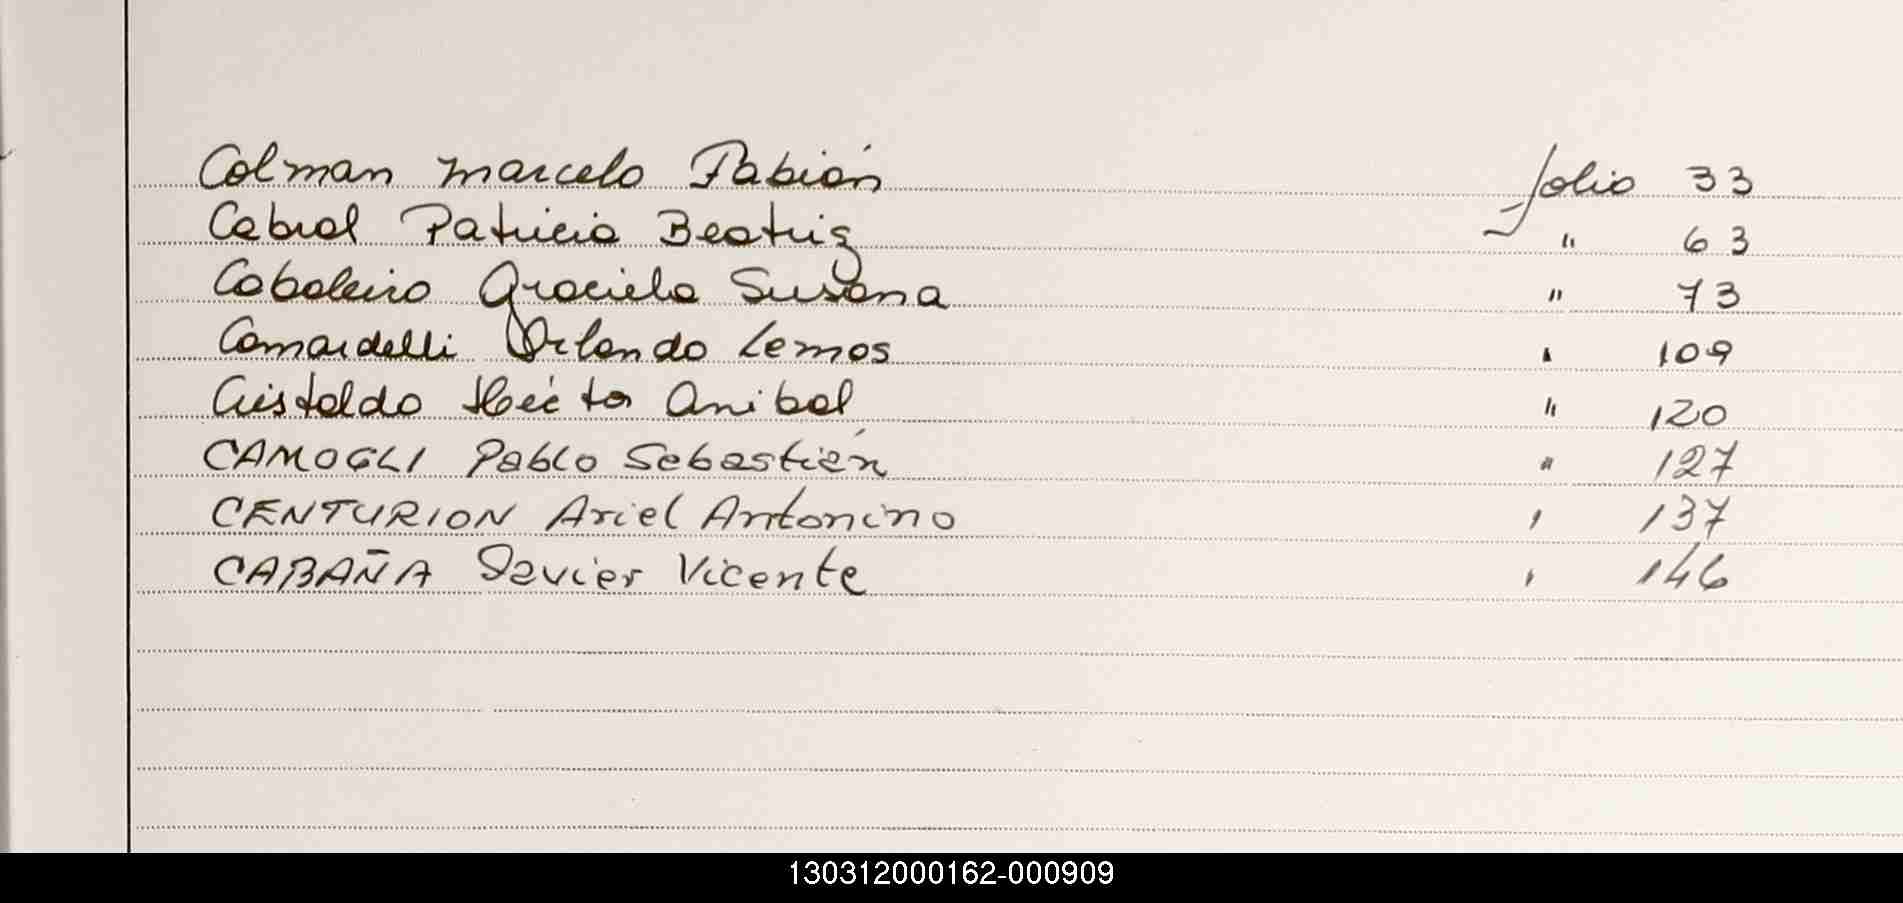 Colman Marcelo Fabián folio 33
Cabral Patricia Beatriz " 63
Cabaleiro Graciela Susana " 73
Camardelli Orlando Lemos " 109
Cristaldo Héctor Anibal " 120
CAMOGLI Pablo Sebastián " 127
CENTURION Ariel Antonino " 137
CABAÑA Javier Vicente " 146
130312000162-000909